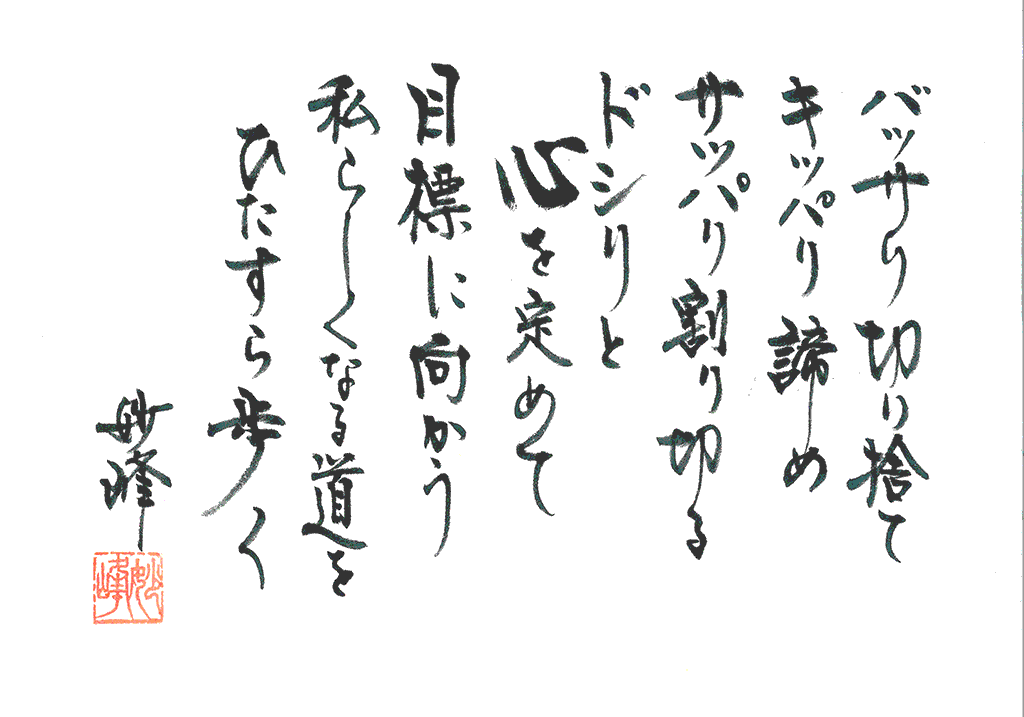 バッサリ切り捨て
キッパリ諦め
サッパリ割り切る
ドシリと
心を定めて
目標に向かう
私らしくなる道を
ひたすら歩く
妙峰
妙峰